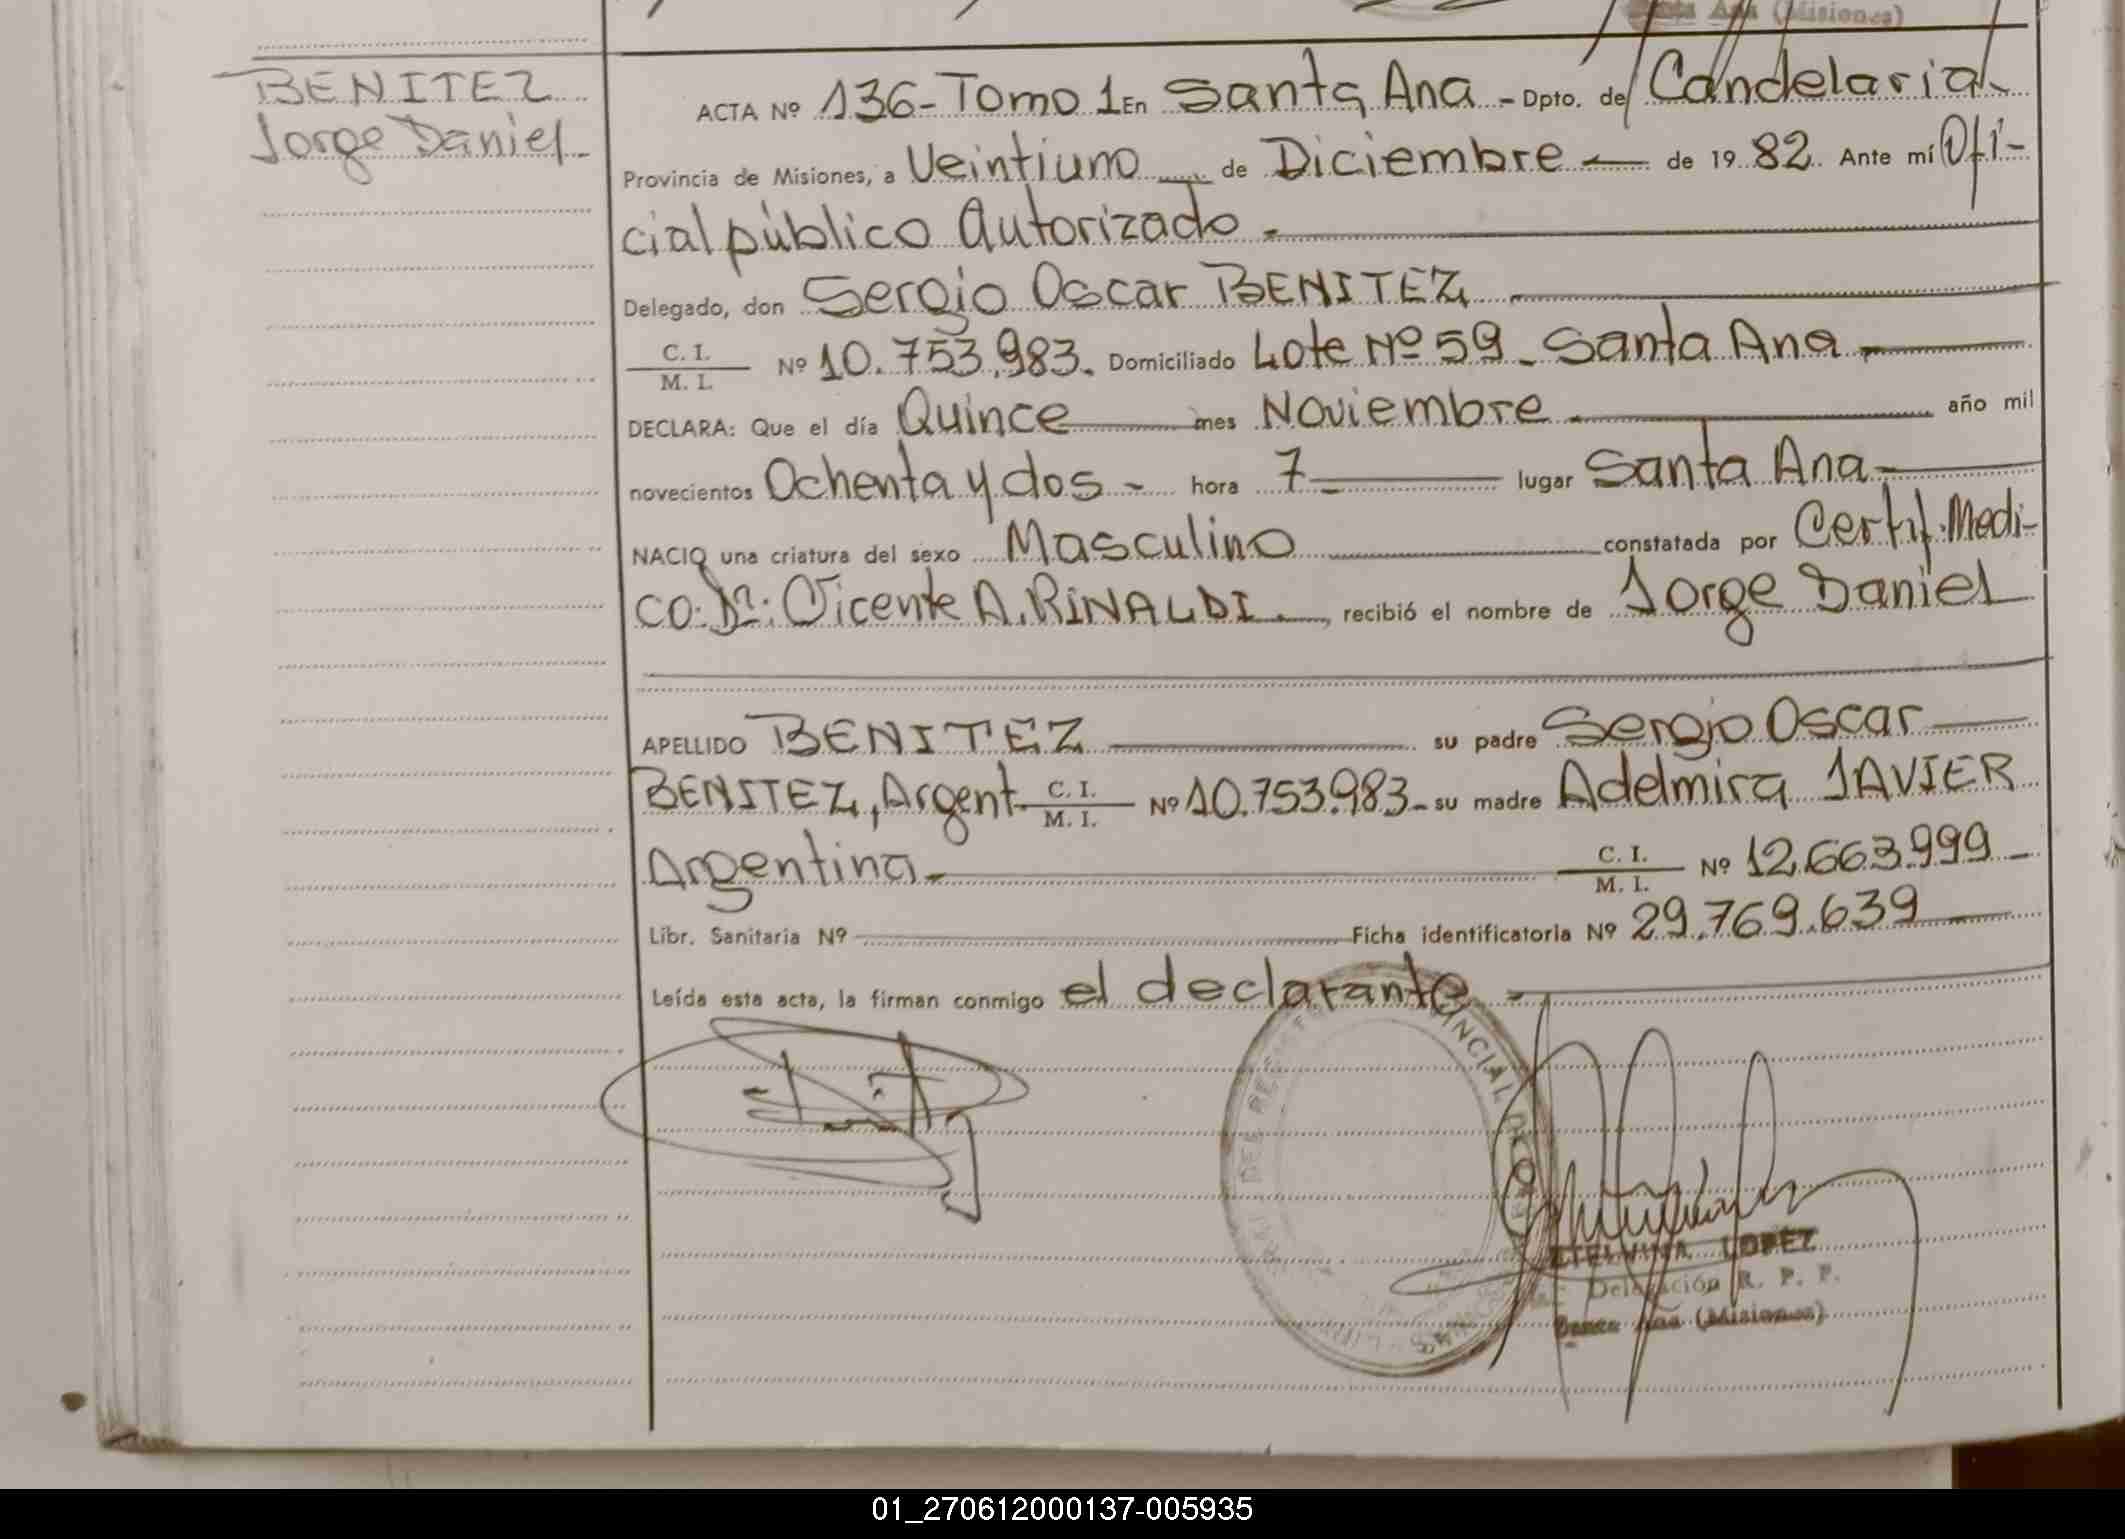 Santa Ana (Misiones)
BENITEZ
Jorge Daniel
ACTA Nº 136 - Tomo 1 En Santa Ana - Dpto. de Candelaria
Provincia de Misiones, a Veintiuno de Diciembre de 1982. Ante mí Ofi-
cial público Autorizado
Delegado, don Sergio Oscar BENITEZ
C. I.
M. I. Nº 10.753.983. Domiciliado Lote Nº 59 - Santa Ana
DECLARA: Que el día Quince mes Noviembre año mil
novecientos Ochenta y dos - hora 7 lugar Santa Ana
NACIO una criatura del sexo Masculino constatada por Certif. Medi-
co: Dr: Vicente A. RINALDI, recibió el nombre de Jorge Daniel
APELLIDO BENITEZ su padre Sergio Oscar
BENITEZ, Argent. C. I.
M. I. Nº 10.753.983 - su madre Adelmira JAVIER
Argentina C. I.
M. I. Nº 12.663.999
Libr. Sanitaria Nº Ficha identificatoria Nº 29.769.639
Leída esta acta, la firman conmigo el declarante
DEL REGISTRO PROVINCIAL DE
ETELVINA LOPEZ
Delegación R. P. P.
Santa Ana (Misiones)
01_270612000137-005935